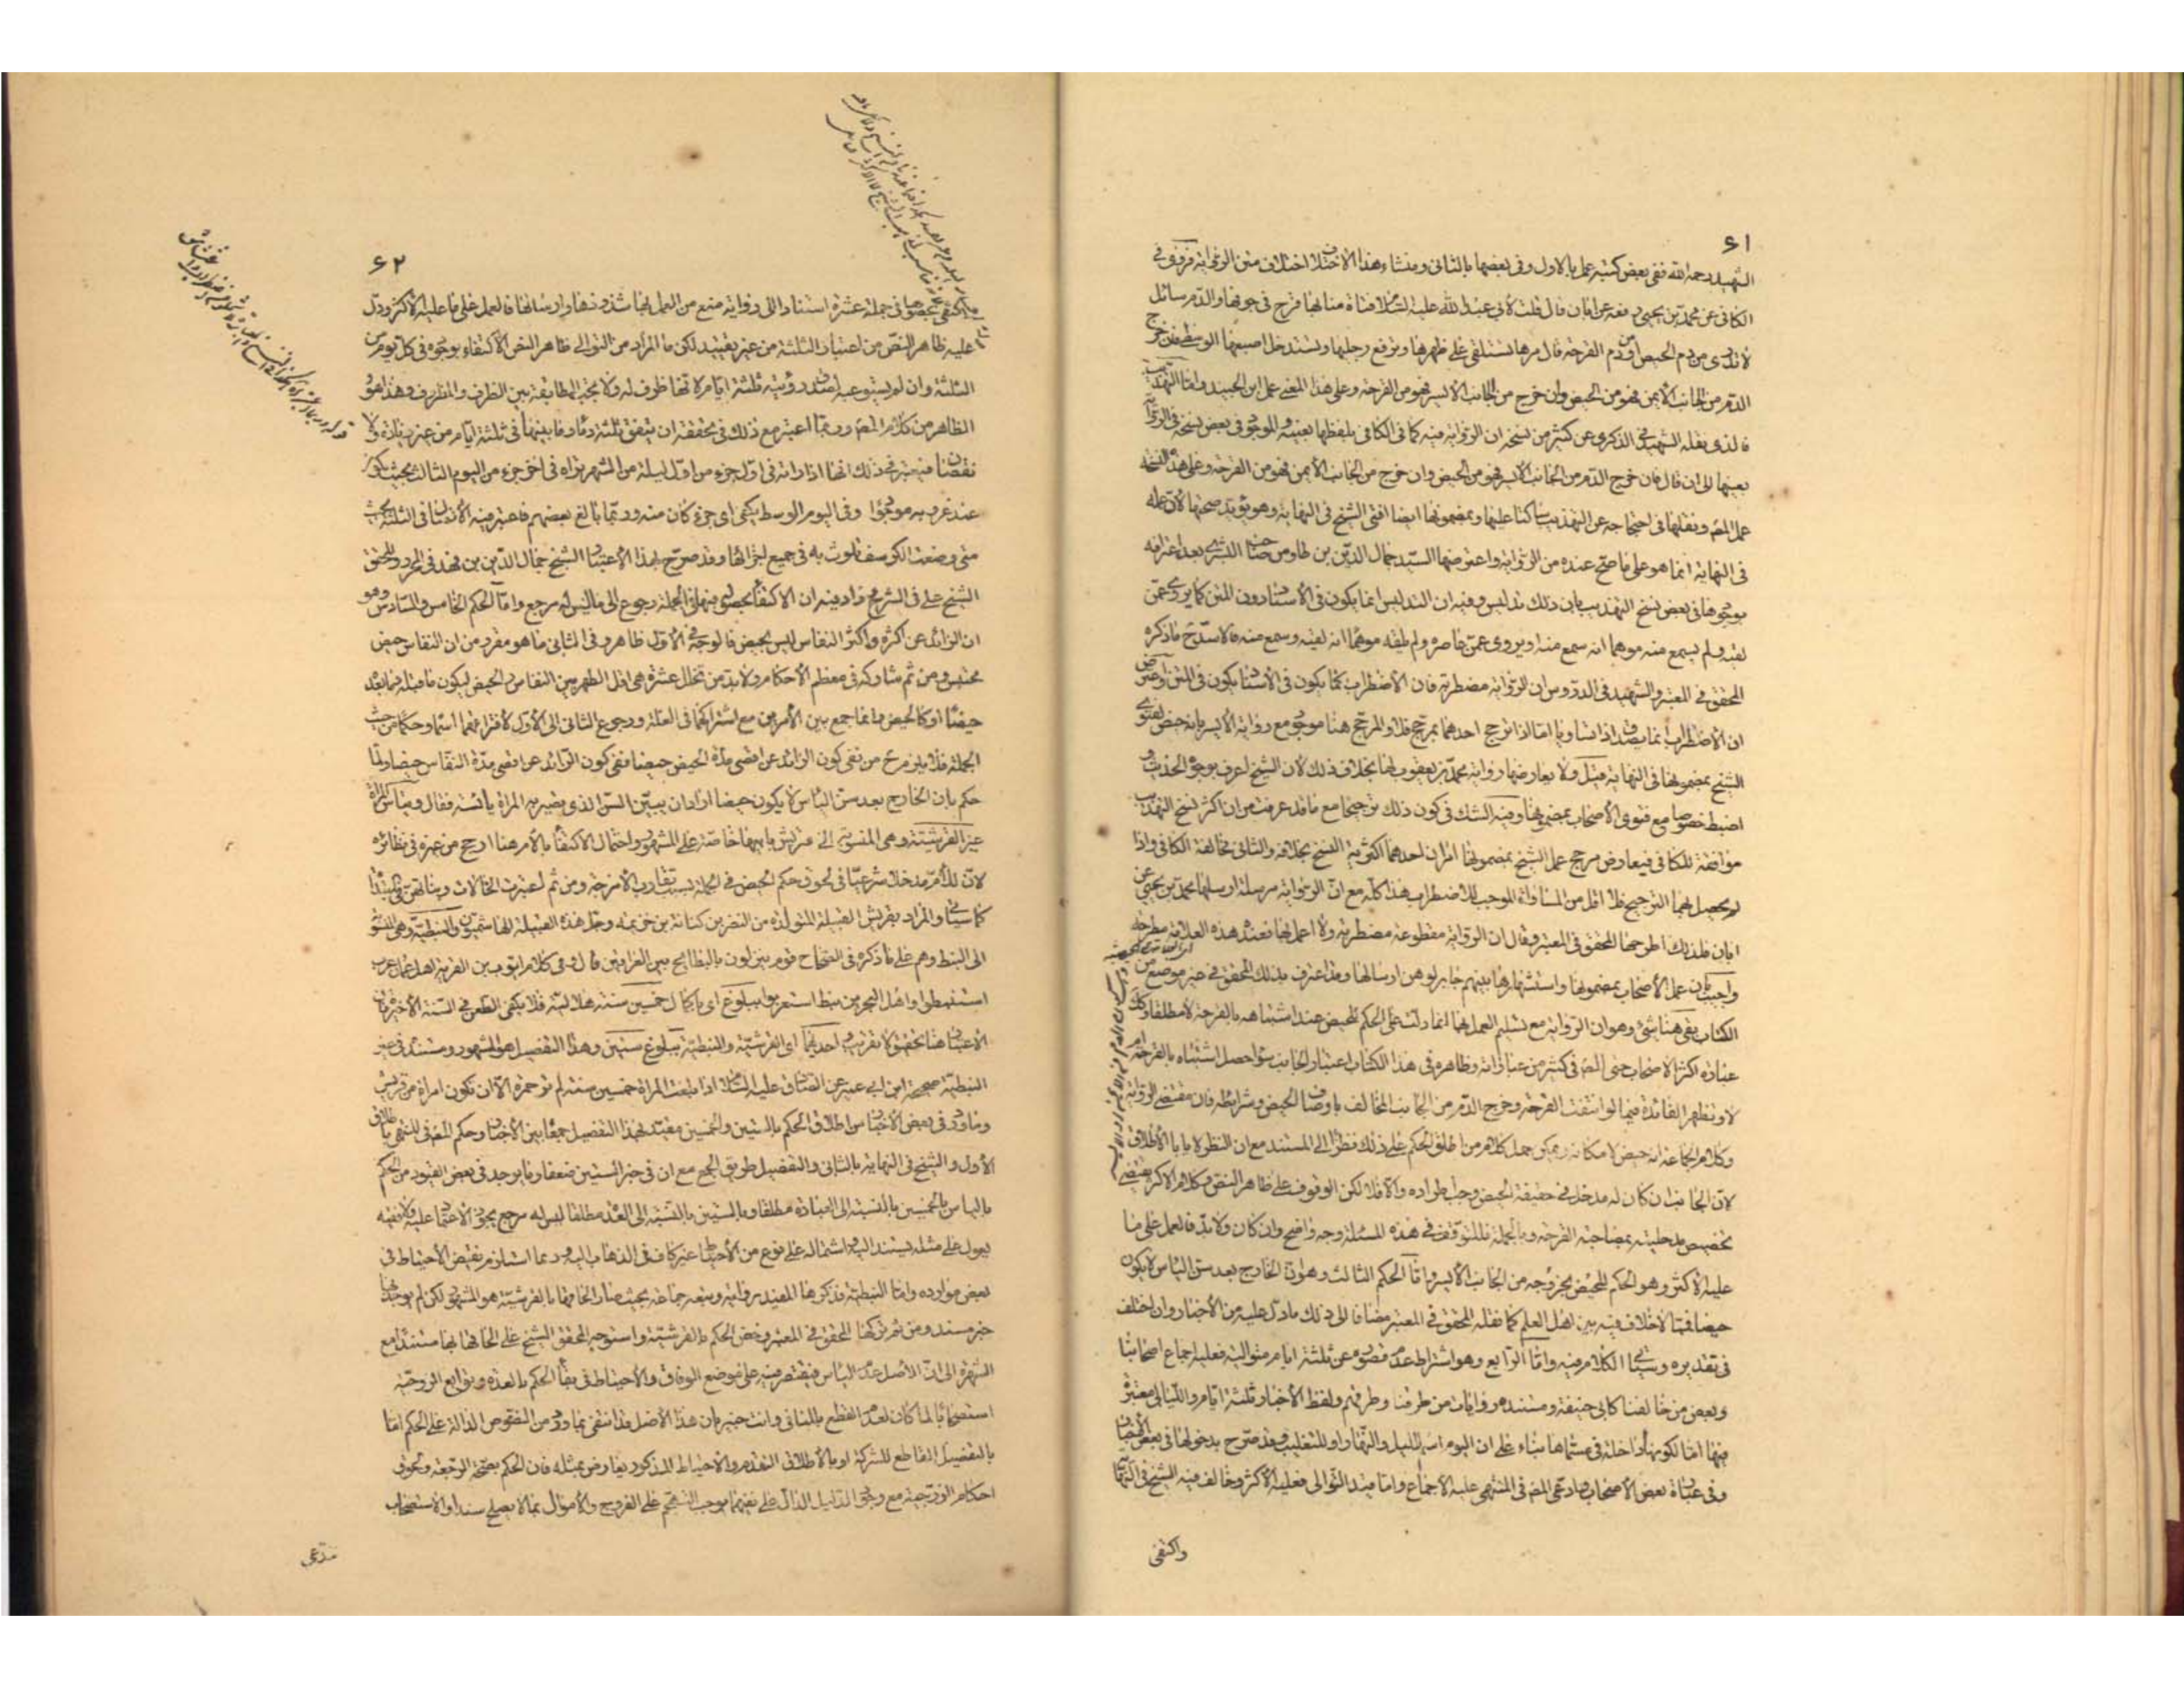 ٦١
الشهيد رحمه الله ففى بعض كتبه عمل بالاول وفى بعضها بالثانى ومنشاء هذا الاختلاف اختلاف متن الرواية فروى فى
الكافى عن محمد بن يحيى رفعه عن ابان قال قلت لابى عبد الله عليه السلام فتاة منا بها قرح فى جوفها والدم سائل
لا تدرى من دم الحيض او من دم القرحة قال مرها تستلقى على ظهرها وترفع رجليها وتستدخل اصبعها الوسطى فان خرج
الدم من الجانب الايمن فهو من الحيض وان خرج من الجانب الايسر فهو من القرحة وعلى هذا المعنى عمل ابن الجنيد واما التهذيب
فالذى نقله الشهيد فى الذكرى عن كثير من نسخه ان الرواية فيه كما فى الكافى بلفظها بعينه والموجود فى بعض نسخه فى الرواية
بعينها الى ان قال فان خرج الدم من الجانب الايسر فهو من الحيض وان خرج من الجانب الايمن فهو من القرحة وعلى هذه النسخة
عمل المصَ ونقلها فى احتجاجه عن التهذيب ساكتا عليها وبمضمونها ايضا افتى الشيخ فى النهاية وهو يؤيد صحتها لان عمله
فى النهاية انما هو على ما صح عنده من الرواية واعترضها السيد جمال الدين بن طاوس صاحب البشرى بعد اعترافه
بوجودها فى بعض نسخ التهذيب بان ذلك تدليس وفيه ان التدليس انما يكون فى الاسناد دون المتن كما يروى عمن
لقيه ولم يسمع منه موهما انه سمع منه او يروى عمن عاصره ولم يلقه موهما انه لقيه وسمع منه فالاسدّ ح ما ذكره
المحقق فى المعتبر والشهيد فى الدروس ان الرواية مضطربة فان الاضطراب كما يكون فى الاسناد يكون فى المتن واعترض
ان الاضطراب انما يصدق اذا تساويا اما اذا ترجح احدهما بمرجح فلا والمرجح هنا موجود مع رواية الايسر بانه حيض لفتوى
الشيخ بمضمونها فى النهاية قيل ولا يعارضها رواية محمد بن يعقوب لها بخلاف ذلك لان الشيخ اعرف بوجوه الحديث و
اضبط خصوصا مع فتوى الاصحاب بمضمونها وفيه الشك فى كون ذلك ترجيحا مع ما قد عرفت من ان اكثر نسخ التهذيب
موافقة للكافى فيعارض مرجح عمل الشيخ بمضمونها امران احدهما اكثرية النسخ بخلافه والثانى مخالفة الكافى واذا
لم يحصل بهما الترجيح فلا اقل من المساواة الموجب للاضطراب هذا كله مع ان الرواية مرسلة ارسلها محمد بن يحيى عن
ابان فلذلك اطرحها المحقق فى المعتبر وقال ان الرواية مقطوعة مضطربة ولا اعمل بها فعند هذه العلامة مطرحة
واجيب بان عمل الاصحاب بمضمونها واستشهارها بينهم جابر لوهن ارسالها وقد اعترف بذلك المحقق فى غير موضع من
الكتاب بقى هنا شئ وهو ان الرواية مع تسليم العمل بها انما دلت على الحكم للحيض عند اشتباهه بالقرحة لا مطلقا وكك
عبارة اكثر الاصحاب حتى المصَ فى كثير من عباراته وظاهره فى هذا الكتاب اعتبار الجانب سواء حصل اشتباه بالقرحة ام
لا وتظهر الفائدة فيما لو انتفت القرحة وخرج الدم من الجانب المخالف باوصاف الحيض وشرائطه فان مقتضى الرواية
وكلام الجماعة انه حيض لامكانه ويمكن حمل كلام من اطلق الحكم على ذلك نظرا الى المستند مع ان النظر لا يابى الاطلاق
لان الجانب ان كان له مدخل فى حقيقة الحيض وجب طراده والا فلا لكن الوقوف على ظاهر النص وكلام الاكثر يقتضى
تخصيص مدخليته بمصاحبة القرحة وبالجملة فللتوقف فى هذه المسئلة وجه واضح وان كان ولابد فالعمل على ما
عليه الاكثر وهو الحكم للحيض بخروجه من الجانب الايسر واما الحكم الثالث وهو ان الخارج بعد سن الياس لا يكون
حيضا فمما لا خلاف فيه بين اهل العلم كما نقله المحقق فى المعتبر مضافا الى ذلك ما دل عليه من الاخبار وان اختلف
فى تقديره وسياتى الكلام فيه واما الرابع وهو اشتراط عدم قصوره عن ثلثة ايام متوالية فعليه اجماع اصحابنا
وبعض من خالفنا كابى حنيفة ومستنده روايات من طرقنا وطرقهم ولفظ الاخبار ثلثة ايام والليالى معتبرة
فيها اما لكونها داخلة فى مسماها بناء على ان اليوم اسم لليل والنهار او للتغليب وقد صرح بدخولها فى بعض الاخبار
وفى عبارة بعض الاصحاب وادعى المصَ فى المنتهى عليه الاجماع واما قيد التوالى فعليه الاكثر وخالف فيه الشيخ فى النهاية
واكتفى
٦٢
فاكتفى بحصولها فى جملة عشرة استنادا الى رواية منع من العمل بها شذوذها وارسالها فالعمل على ما عليه الاكثر ودل
عليه ظاهر النص من اعتبار الثلثة من غير تقييد لكن ما المراد من التوالى ظاهر النص الاكتفاء بوجوده فى كل يوم من
الثلثة وان لم يستوعبه لصدق رؤيته ثلثة ايام لانها ظرف له ولا يجب المطابقة بين الظرف والمظروف وهذا هو
الظاهر من كلام المصَ وربما اعتبر مع ذلك فى تحققه ان يتفق ثلثة دماء وما بينها فى ثلثة ايام من غير زيادة ولا
نقصان فيعتبر فى ذلك انها اذا راته فى اول جزء من اول ليلة من الشهر تراه فى اخر جزء من اليوم الثالث بحيث يكون
عند غروبه موجودا وفى اليوم الوسط يكفى اى جزء كان منه وربما بالغ بعضهم فاعتبر فيه الاتصال فى الثلثة بحيث
متى وضعت الكرسف تلوث به فى جميع اجزائها وقد صرح بهذا الاعتبار الشيخ جمال الدين بن فهد فى المحرر والمحقق
الشيخ على فى الشرح وزاد فيه ان الاكتفاء بحصوله فيها فى الجملة رجوع الى ما ليس له مرجع واما الحكم الخامس والسادس وهو
ان الزائد عن اكثره واكثر النفاس ليس بحيض فالوجه فى الاول ظاهر وفى الثانى ما هو مقرر من ان النفاس حيض
محتبس ومن ثم شاركه فى معظم الاحكام ولابد من تخلل عشرة هى اقل الطهر بين النفاس والحيض ليكون ما قبله وما بعده
حيضا او كالحيض وانما جمع بين الامرين مع اشتراكهما فى العلة ورجوع الثانى الى الاول لافتراقهما اسما وحكما من حيث
الجملة فلا يلزم من نفى كون الزائد عن اقصى مدة الحيض حيضا نفى كون الزائد عن اقصى مدة النفاس حيضا ولما
حكم بان الخارج بعد سن الياس لا يكون حيضا اراد ان يبين السن الذى يصير به المراة يائسة فقال وتياس المراة
غير القرشية وهى المنسوبة الى قريش بابيها خاصة على المشهور واحتمال الاكتفاء بالام هنا ارجح من غيره فى نظائره
لان للام مدخلا شرعيا فى لحوق حكم الحيض فى الجملة بسبب تقارب الامزجة ومن ثم اعتبرت الخالات وبناتهن فى المبتدأة
كما سياتى والمراد بقريش القبيلة المتولدة من النضر بن كنانة بن خزيمة وجل هذه القبيلة الهاشميون والنبطية وهى المنسوبة
الى النبط وهم على ما ذكره فى الصحاح قوم ينزلون بالبطايح بين العراقين قال وفى كلام ايوب بن القرية اهل عمان عرب
استنبطوا واهل البحرين نبط استعربوا ببلوغ اى باكمال خمسين سنة هلالية فلا يكفى الطعن فى السنة الاخيرة فان
الاعتبار هنا تحقيق لا تقريب واحديهما اى القرشية والنبطية ببلوغ ستين وهذا التفصيل هو المشهور ومستنده فى غير
النبطية صحيحة ابن ابى عمير عن الصادق عليه السلام اذا بلغت المراة خمسين سنة لم تر حمرة الا ان تكون امراة من قريش
وما ورد فى بعض الاخبار من اطلاق الحكم بالستين والخمسين مقيد بهذا التفصيل جمعا بين الاخبار وحكم المصَ فى المنتهى باطلاق
الاول والشيخ فى النهاية بالثانى والتفصيل طريق الجمع مع ان فى خبر الستين ضعفا وما يوجد فى بعض القيود من الحكم
بالياس بالخمسين بالنسبة الى العبادة مطلقا وبالستين بالنسبة الى العدة مطلقا ليس له مرجع يجوز الاعتماد عليه ولا فقيه
يعول على مثله يستند اليه واشتماله على نوع من الاحتياط غير كاف فى الذهاب اليه وربما استلزم نقيض الاحتياط فى
بعض موارده واما النبطية فذكرها المفيد رواية وتبعه جماعة بحيث صار الحاقها بالقرشية هو المشهور لكن لم يوجد بها
خبر مسند ومن ثم تركها المحقق فى المعتبر وخص الحكم بالقرشية واستوجه المحقق الشيخ على الحاقها بها مستندا مع
الشهرة الى ان الاصل عدم الياس فيقتصر فيه على موضع الوفاق والاحتياط فى بقاء الحكم بالعدة وتوابع الزوجية
استصحابا لما كان لعدم القطع بالمنافى وانت خبير بان هذا الاصل قد انتفى بما ورد من النصوص الدالة على الحكم اما
بالتفصيل القاطع للشركة او بالاطلاق المتقدم والاحتياط المذكور يعارض بمثله فان الحكم بصحة الرجعة ولحوق
احكام الزوجية مع ورود الدليل الدال على نفيهما يوجب التهجم على الفروج والاموال بما لا يصلح سندا والاستصحاب
مدعى